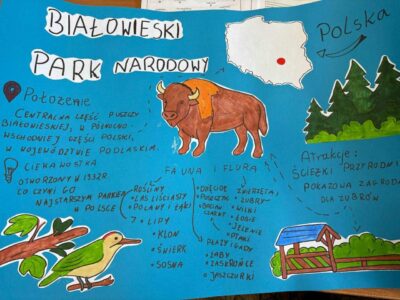 BIAŁOWIESKI
PARK NARODOWY
POLSKA
POŁOŻENIE
CENTRALNA CZĘŚĆ PUSZCZY
BIAŁOWIESKIEJ, W PÓŁNOCNO-
WSCHODNIEJ CZĘŚCI POLSKI,
W WOJEWÓDZTWIE PODLASKIM.
CIEKAWOSTKA
OTWORZONY W 1932R.
CO CZYNI GO
NAJSTARSZYM PARKIEM
W POLSCE
FAUNA I FLORA
ROŚLINY
LAS LIŚCIASTY
POLANY I ŁĄKI
LIPY
KLON
ŚWIERK
SOSNA
ZWIERZĘTA
BOCIAN
CZARNY
ŻUBRY
WILKI
ŁOSIE
JELENIE
PTAKI
PŁAZY I GADY
ŻABY
ZASKROŃCE
JASZCZURKI
ATRAKCJE:
ŚCIEŻKI PRZYRODNI
POKAZOWA ZAGRODA
DLA ŻUBRÓW